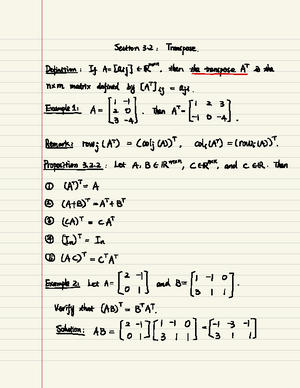 Section 3.2 : Transpose.
Definition : If A = [aij] ∈ ℝᵐˣⁿ, then the transpose Aᵀ is the
n×m matrix defined by [Aᵀ]ij = aji.
Example 1: A = [1 -1; 2 0; 3 -4]. Then Aᵀ = [1 2 3; -1 0 -4].
Remark: rowj (Aᵀ) = (colj (A))ᵀ, coli (Aᵀ) = (rowi (A))ᵀ.
Proposition 3.2.2 : Let A, B ∈ ℝᵐˣⁿ, C ∈ ℝⁿˣᵖ, and c ∈ ℝ. Then
① (Aᵀ)ᵀ = A
② (A+B)ᵀ = Aᵀ + Bᵀ
③ (cA)ᵀ = cAᵀ
④ (In)ᵀ = In
⑤ (AC)ᵀ = CᵀAᵀ
Example 2: Let A = [2 -1; 0 1] and B = [1 -1 0; 3 1 1].
Verify that (AB)ᵀ = BᵀAᵀ.
Solution: AB = [2 -1; 0 1] [1 -1 0; 3 1 1] = [-1 -3 -1; 3 1 1]